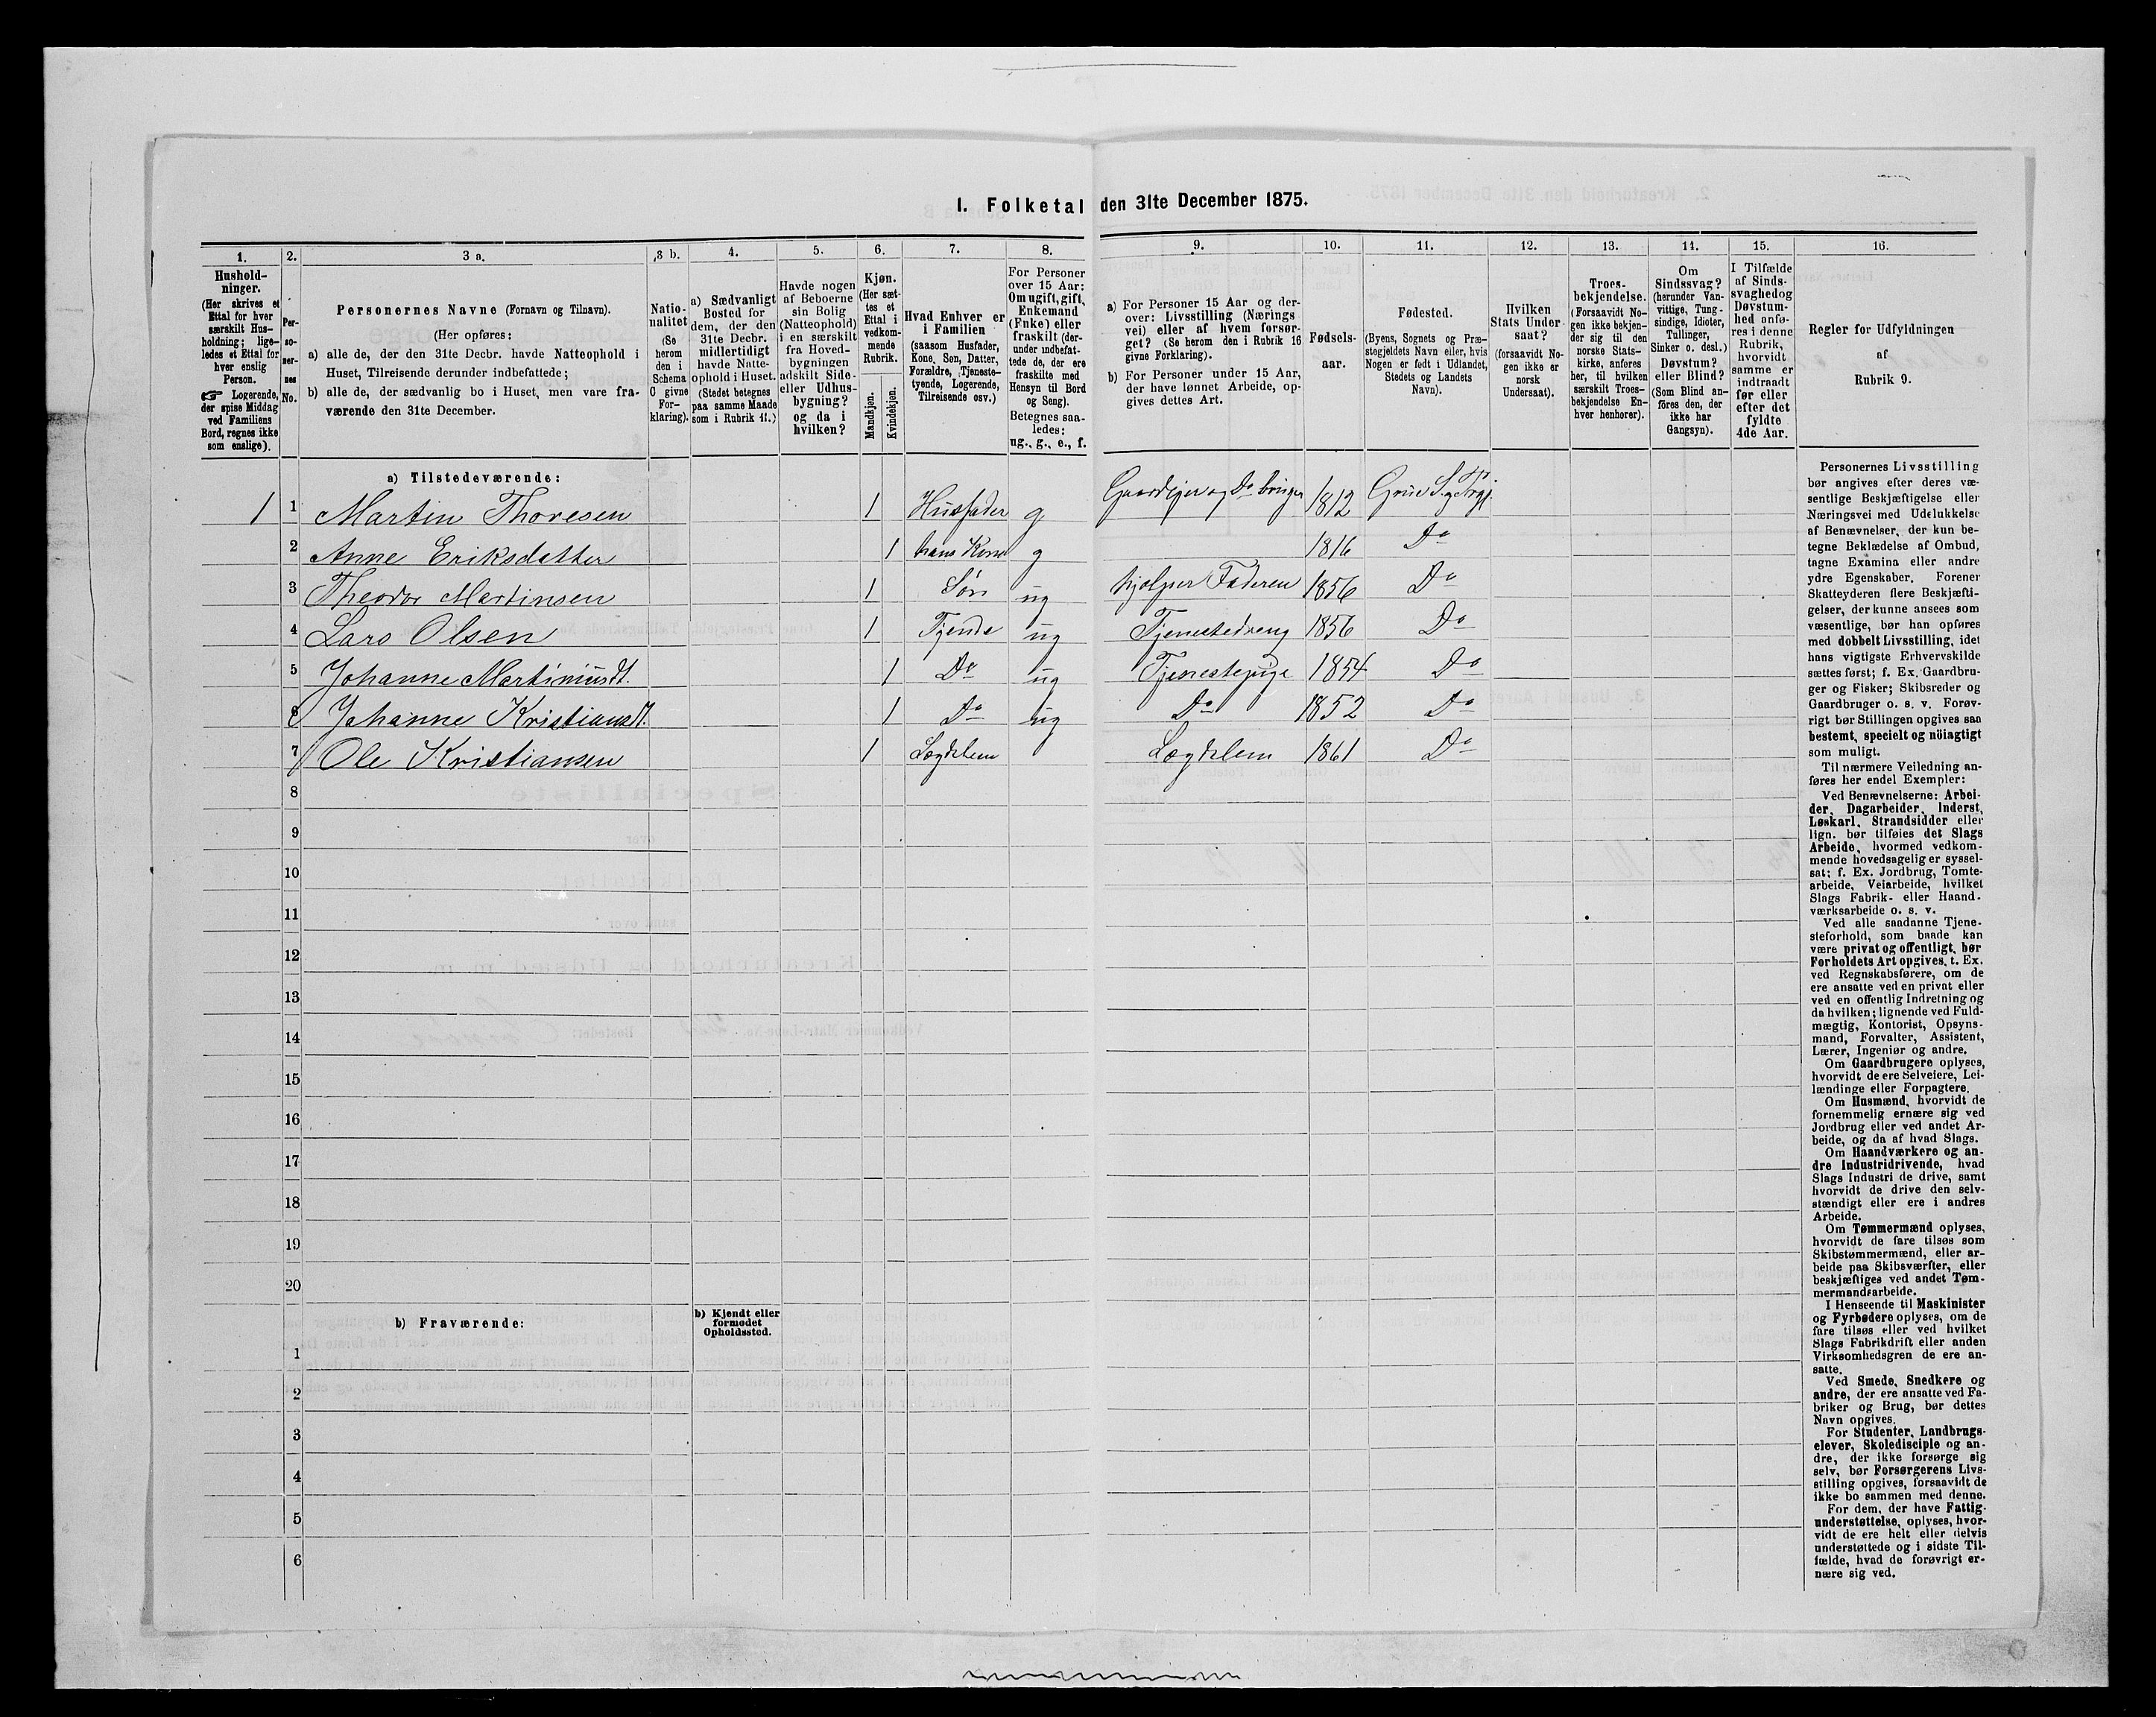 I. Folketal den 31te December 1875.
1.
2.
3 a.
3 b.
4.
5.
6.
7.
8.
9.
10.
11.
12.
13.
14.
15.
16.
Hushold-
ninger.
(Her skrives et
Ettal for hver
særskilt Hus-
holdning; lige-
ledes et Ettal for
hver enslig
Person.
☞ Logerende,
der spise Middag
ved Familiens
Bord, regnes ikke
som enslige).
Per-
so-
ner-
nes
No.
Personernes Navne (Fornavn og Tilnavn).
(Her opføres:
a) alle de, der den 31te Decbr. havde Natteophold i
Huset, Tilreisende derunder indbefattede;
b) alle de, der sædvanlig bo i Huset, men vare fra-
værende den 31te December.
Natio-
nalitet
(Se
herom
den i
Schema
C givne
For-
klaring).
a) Sædvanligt
Bosted for
dem, der den
31te Decbr.
midlertidigt
havde Natte-
ophold i Huset.
(Stedet betegnes
paa samme Maade
som i Rubrik 11.)
Havde nogen
af Beboerne
sin Bolig
(Natteophold)
i en særskilt
fra Hoved-
bygningen
adskilt Side-
eller Udhus-
bygning?
og da i
hvilken?
Kjøn.
(Her sæt-
tes et
Ettal i
vedkom-
mende
Rubrik.
Mandkjøn.
Kvindekjøn.
Hvad Enhver er
i Familien
(saasom Husfader,
Kone, Søn, Datter,
Forældre, Tjeneste-
tyende, Logerende,
Tilreisende osv.)
For Personer
over 15 Aar:
Om ugift, gift,
Enkemand
(Enke) eller
fraskilt (der-
under indbefat-
tede de, der ere
fraskilte med
Hensyn til Bord
og Seng).
Betegnes saa-
ledes:
ug., g., e., f.
a) For Personer 15 Aar og der-
over: Livsstilling (Nærings
vei) eller af hvem forsør-
get? (Se herom den i Rubrik 16
givne Forklaring).
b) For Personer under 15 Aar,
der have lønnet Arbeide, op-
gives dettes Art.
Fødsels-
aar.
Fødested.
(Byens, Sognets og Præ-
stegjeldets Navn eller, hvis
Nogen er født i Udlandet,
Stedets og Landets
Navn).
Hvilken
Stats Under-
saat?
(forsaavidt No-
gen ikke er
norsk
Undersaat).
Troes-
bekjendelse.
(Forsaavidt No-
gen ikke bekjen-
der sig til den
norske Stats-
kirke, anføres
her, til hvilken
særskilt Troes-
bekjendelse En-
hver henhører).
Om
Sindssvag?
(herunder Van-
vittige, Tung-
sindige, Idioter,
Tullinger,
Sinker o. desl.)
Døvstum?
eller Blind?
(Som Blind an-
føres den, der
ikke har
Gangsyn).
I Tilfælde
af Sinds-
svaghed og
Døvstum-
hed anfø-
res i denne
Rubrik,
hvorvidt
samme er
indtraadt
før eller
efter det
fyldte
4de Aar.
Regler for Udfyldningen
af
Rubrik 9.
a) Tilstedeværende:
1 1 Martin Thoresen 1 Husfader g Gaardejer og Do bruger 1812 Grue S. og Prgj.
2 Anne Eriksdatter 1 hans Kone g 1816 Do
3 Theodor Martinsen 1 Søn ug hjelper Faderen 1856 Do
4 Lars Olsen 1 Tjende ug Tjenestedreng 1856 Do
5 Johanne Martinusdt. 1 Do ug Tjenestepige 1854 Do
6 Johanne Kristiansdt. 1 Do ug Do 1852 Do
7 Ole Kristiansen 1 Lægdslem Lægdslem 1861 Do
8
9
10
11
12
13
14
15
16
17
18
19
20
b) Fraværende:
b) Kjendt eller
formodet
Opholdssted.
1
2
3
4
5
6
Personernes Livsstilling
bør angives efter deres væ-
sentlige Beskjæftigelse eller
Næringsvei med Udelukkelse
af Benævnelser, der kun be-
tegne Beklædelse af Ombud,
tagne Examina eller andre
ydre Egenskaber. Forener
Skatteyderen flere Beskjæfti-
gelser, der kunne ansees som
væsentlige, bør han opføres
med dobbelt Livsstilling, idet
hans vigtigste Erhvervskilde
sættes først; f. Ex. Gaardbru-
ger og Fisker; Skibsreder og
Gaardbruger o. s. v. Forøv-
rigt bør Stillingen opgives saa
bestemt, specielt og nöiagtigt
som muligt.
Til nærmere Veiledning an-
føres her endel Exempler:
Ved Benævnelserne: Arbei-
der, Dagarbeider, Inderst,
Løskarl, Strandsidder eller
lign. bør tilføies det Slags
Arbeide, hvormed vedkom-
mende hovedsagelig er syssel-
sat; f. Ex. Jordbrug, Tomte-
arbeide, Veiarbeide, hvilket
Slags Fabrik- eller Haand-
værksarbeide o. s. v.
Ved alle saadanne Tjene-
steforhold, som baade kan
være privat og offentligt, bør
Forholdets Art opgives, t. Ex.
ved Regnskabsførere, om de
ere ansatte ved en privat eller
ved en offentlig Indretning og
da hvilken; lignende ved Fuld-
mægtig, Kontorist, Opsyns-
mand, Forvalter, Assistent,
Lærer, Ingeniør og andre.
Om Gaardbrugere oplyses,
hvorvidt de ere Selveiere, Lei-
lændinge eller Forpagtere.
Om Husmænd, hvorvidt de
fornemmelig ernære sig ved
Jordbrug eller ved andet Ar-
beide, og da af hvad Slags.
Om Haandværkere og an-
dre Industridrivende, hvad
Slags Industri de drive, samt
hvorvidt de drive den selv-
stændigt eller ere i andres
Arbeide.
Om Tømmermænd oplyses,
hvorvidt de fare tilsøs som
Skibstømmermænd, eller ar-
beide paa Skibsværfter, eller
beskjæftiges ved andet Tøm-
mermandsarbeide.
I Henseende til Maskinister
og Fyrbødere oplyses, om de
fare tilsøs eller ved hvilket
Slags Fabrikdrift eller anden
Virksomhedsgren de ere an-
satte.
Ved Smede, Snedkere og
andre, der ere ansatte ved Fa-
briker og Brug, bør dettes
Navn opgives.
For Studenter, Landbrugs-
elever, Skoledisciple og an-
dre, der ikke forsørge sig
selv, bør Forsørgerens Livs-
stilling opgives, forsaavidt de
ikke bo sammen med denne.
For dem, der have Fattig-
understøttelse, oplyses, hvor-
vidt de ere helt eller delvis
understøttede og i sidste Til-
fælde, hvad de forøvrigt er-
nære sig ved.